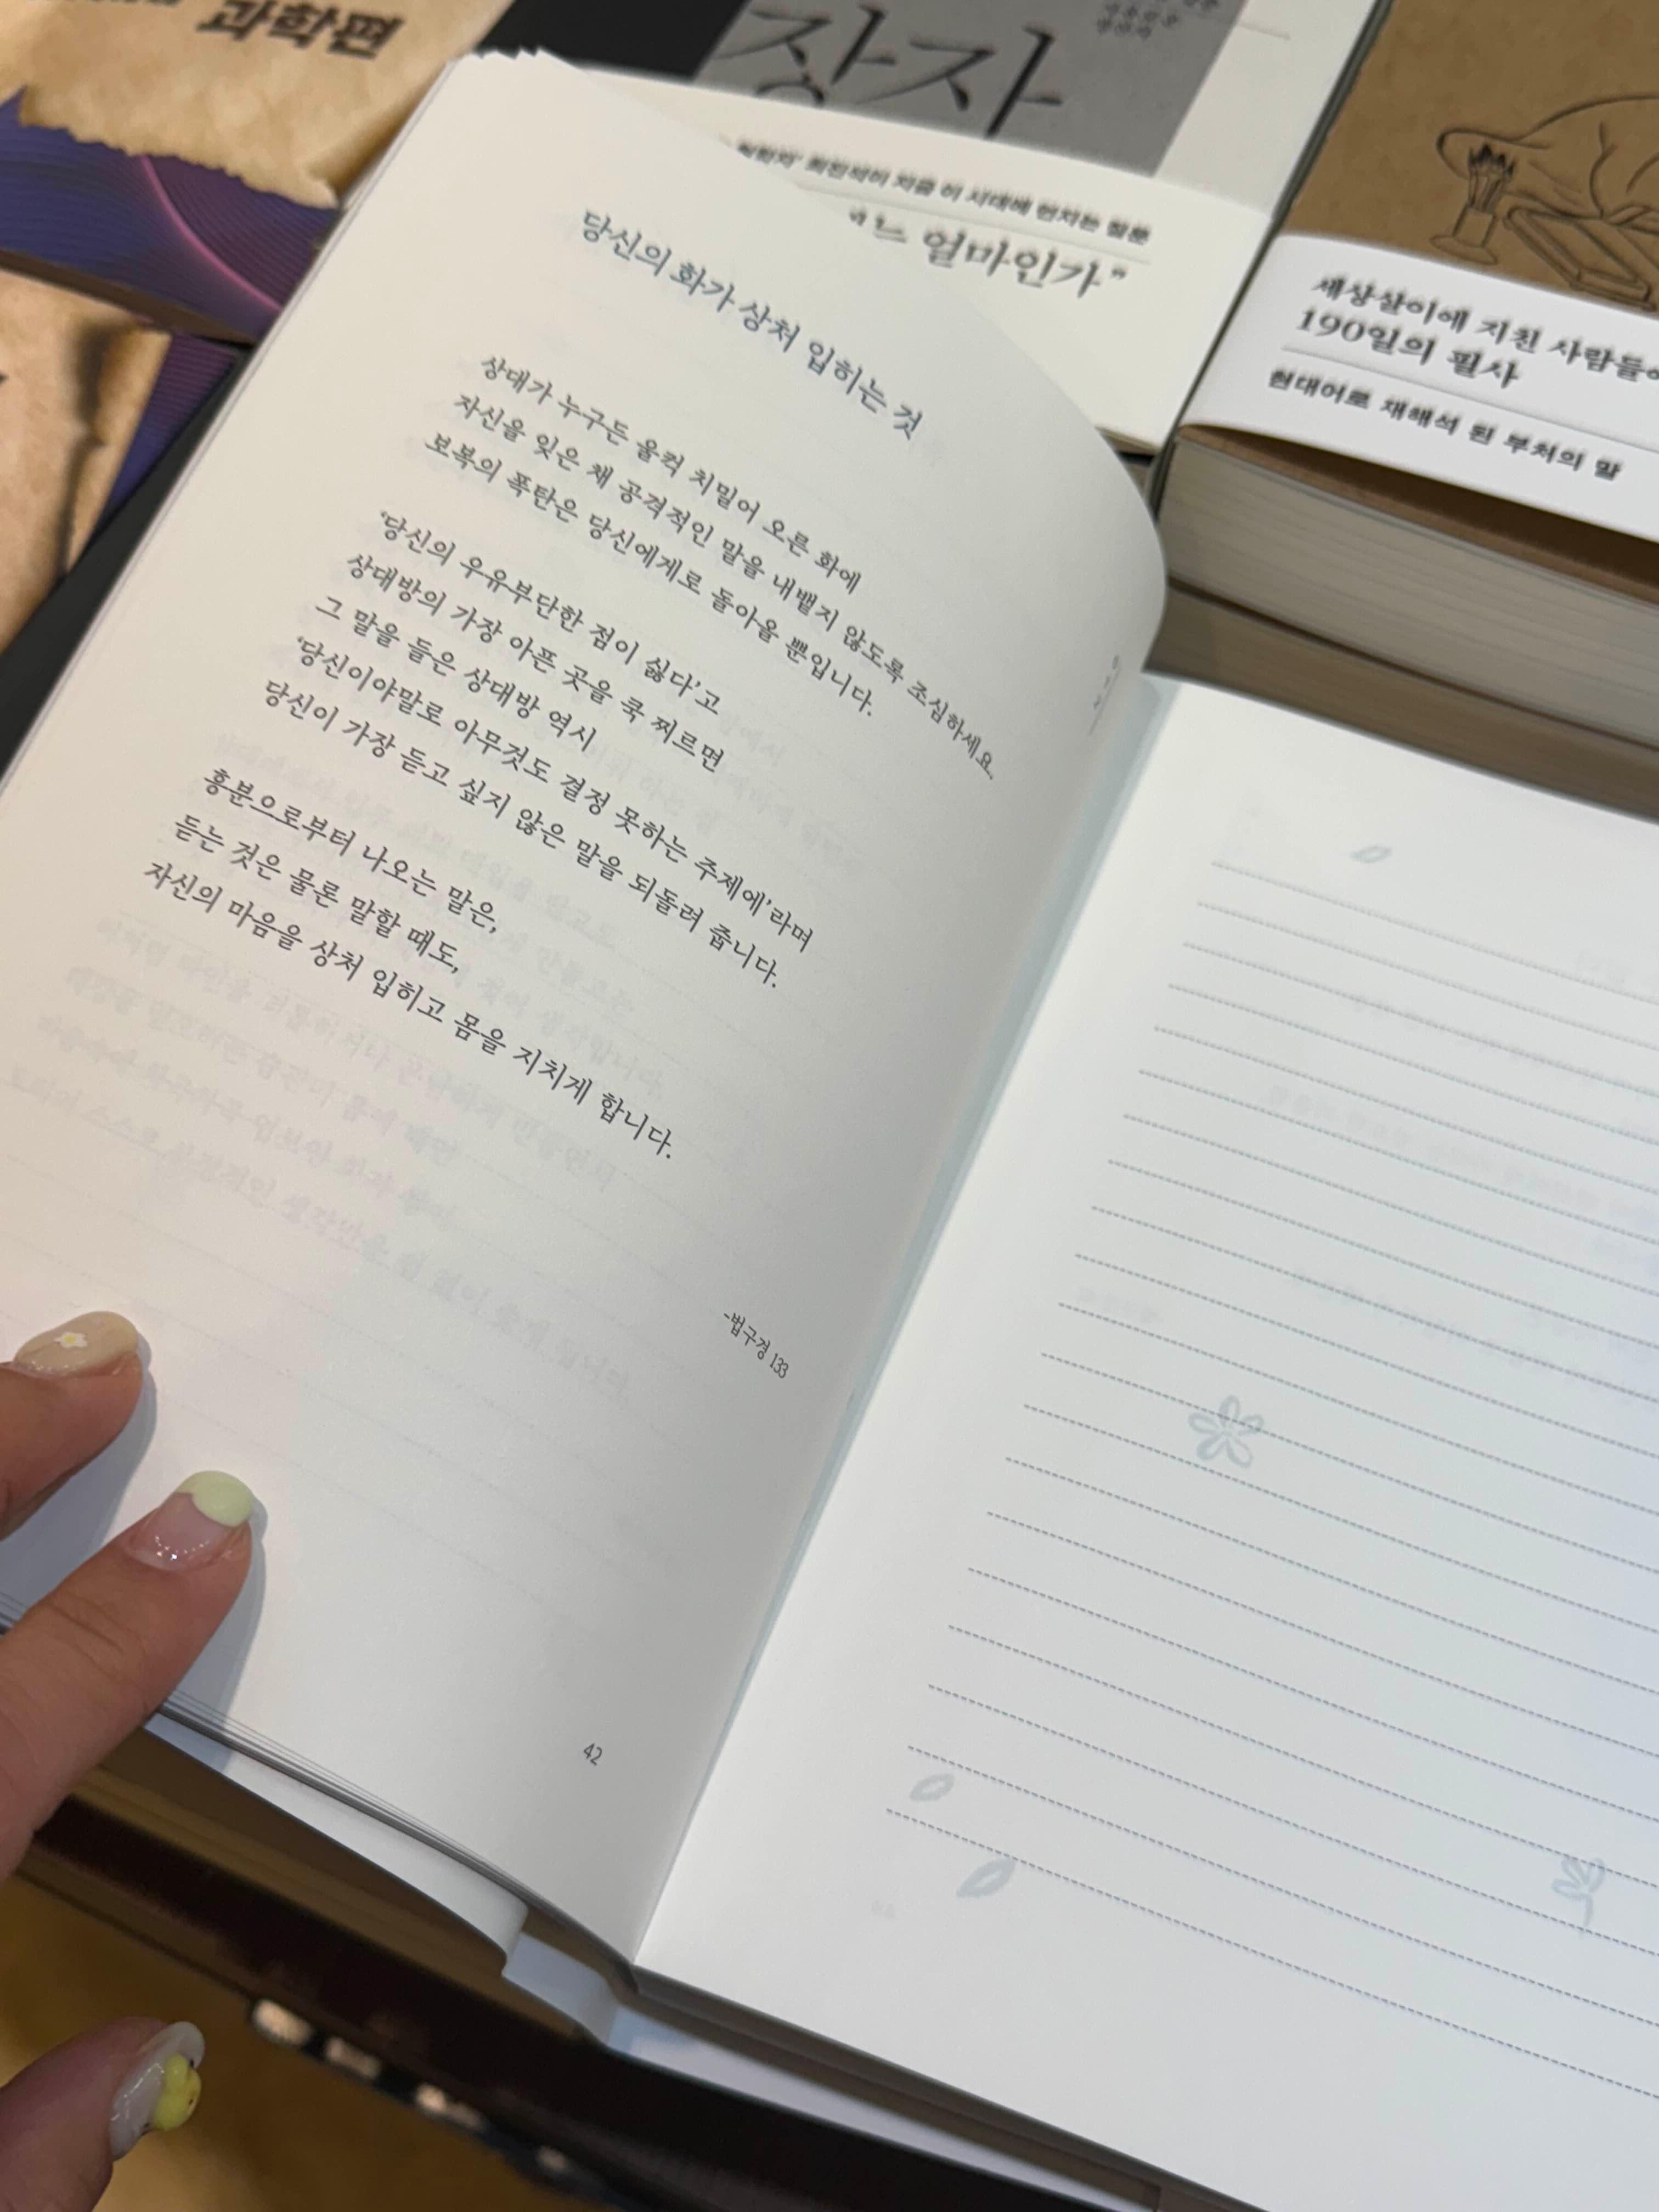 과학편
장자
얼마인가”
세상살이에 지친 사람들
190일의 필사
현대어로 재해석 된 부처의 말
당신의 화가 상처 입히는 것
상대가 누구든 울컥 치밀어 오른 화에
자신을 잊은 채 공격적인 말을 내뱉지 않도록 조심하세요.
보복의 폭탄은 당신에게로 돌아올 뿐입니다.
‘당신의 우유부단한 점이 싫다’고
상대방의 가장 아픈 곳을 쿡 찌르면
그 말을 들은 상대방 역시
‘당신이야말로 아무것도 결정 못하는 주제에’라며
당신이 가장 듣고 싶지 않은 말을 되돌려 줍니다.
흥분으로부터 나오는 말은,
듣는 것은 물론 말할 때도,
자신의 마음을 상처 입히고 몸을 지치게 합니다.
-법구경 133
42